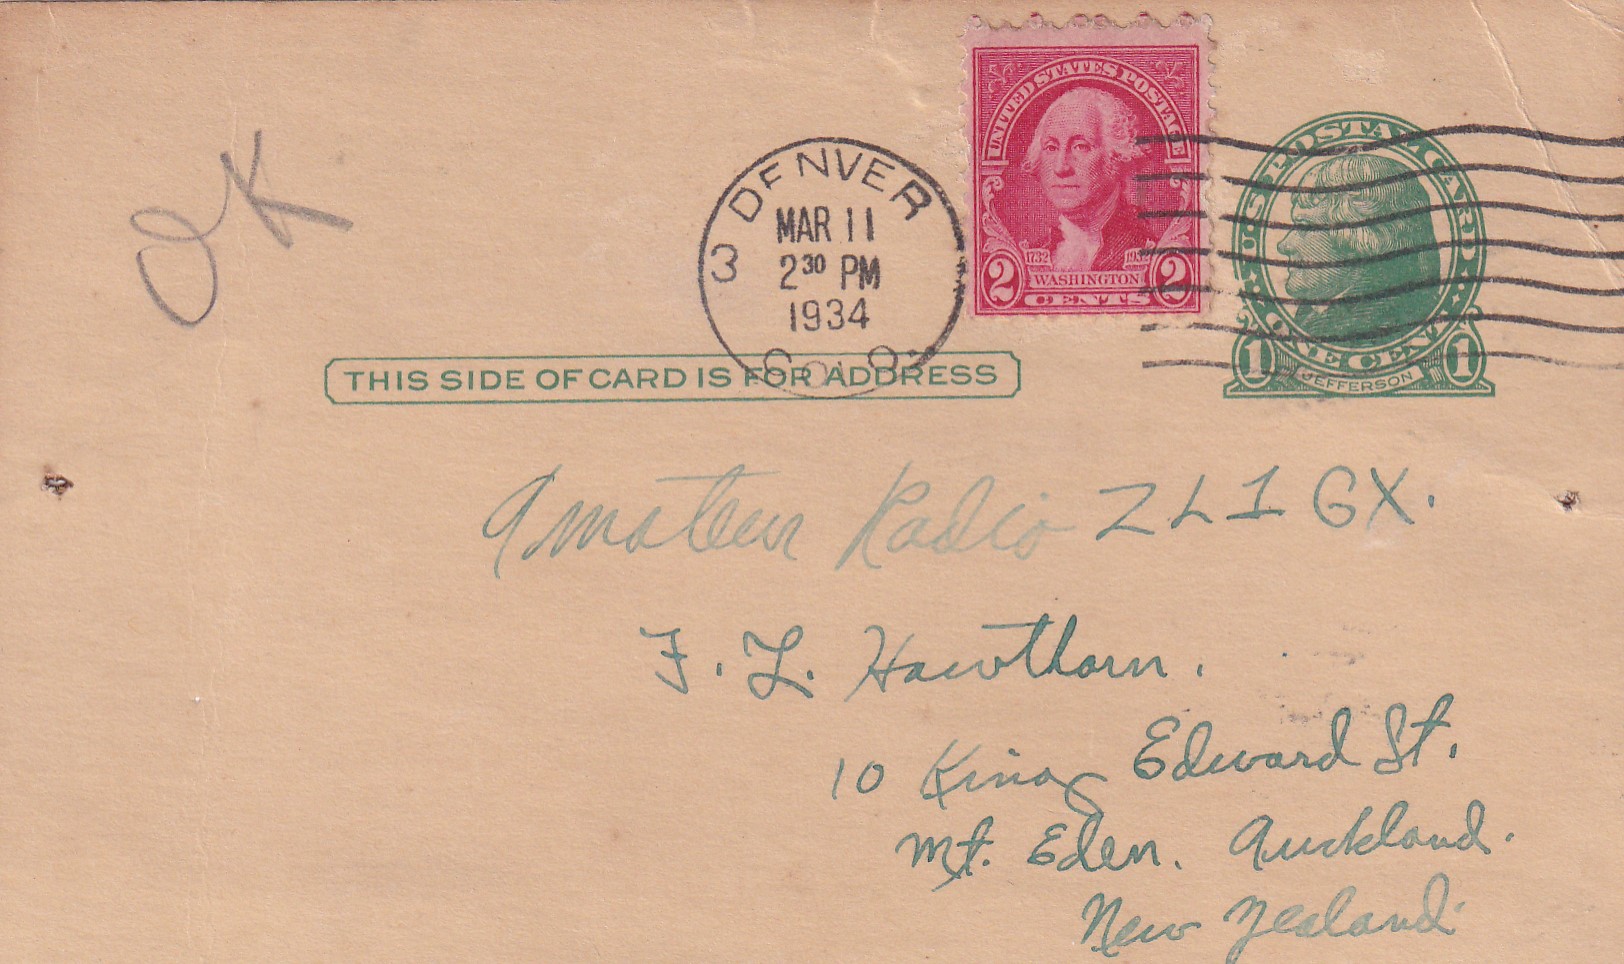 OK
3 DENVER COLO.
MAR 11
2 30 PM
1934
UNITED STATES POSTAGE
1732
WASHINGTON
2 CENTS 2
U.S. POSTAL CARD
ONE CENT
1 JEFFERSON 1
THIS SIDE OF CARD IS FOR ADDRESS
Amateur Radio ZL1GX.
F. L. Hawthorn.
10 King Edward St.
Mt. Eden. Auckland.
New Zealand.